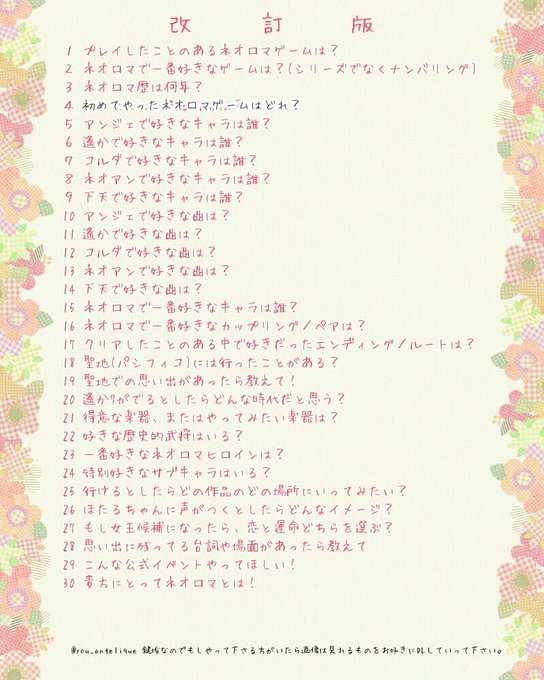 改訂版
1 プレイしたことのあるネオロマゲームは？
2 ネオロマで一番好きなゲームは？(シリーズでなくナンバリング)
3 ネオロマ歴は何年？
4 初めてやったネオロマゲームはどれ？
5 アンジェで好きなキャラは誰？
6 遙かで好きなキャラは誰？
7 コルダで好きなキャラは誰？
8 ネオアンで好きなキャラは誰？
9 下天で好きなキャラは誰？
10 アンジェで好きな曲は？
11 遙かで好きな曲は？
12 コルダで好きな曲は？
13 ネオアンで好きな曲は？
14 下天で好きな曲は？
15 ネオロマで一番好きなキャラは誰？
16 ネオロマで一番好きなカップリング/ペアは？
17 クリアしたことのある中で好きだったエンディング/ルートは？
18 聖地(パシフィコ)には行ったことがある？
19 聖地での思い出があったら教えて！
20 遙か7がでるとしたらどんな時代だと思う？
21 得意な楽器、またはやってみたい楽器は？
22 好きな歴史的武将はいる？
23 一番好きなネオロマヒロインは？
24 特別好きなサブキャラはいる？
25 行けるとしたらどの作品のどの場所にいってみたい？
26 ほたるちゃんに声がつくとしたらどんなイメージ？
27 もし女王候補になったら、恋と運命どちらを選ぶ？
28 思い出に残ってる台詞や場面があったら教えて
29 こんな公式イベントやってほしい！
30 貴方にとってネオロマとは！
@rou_angelique 鍵垢なのでもしやって下さる方がいたら画像は見れるものをお好きにDLしていって下さい。